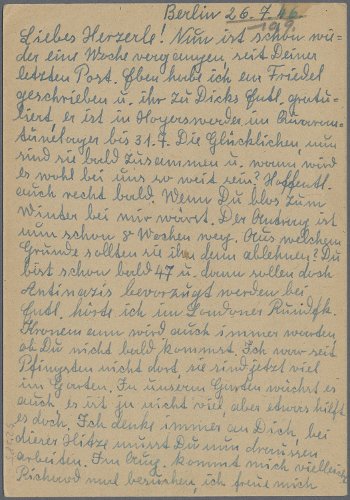 Berlin 26.7.46.
199
Liebes Herzerle! Nun ist schon wie-
der eine Woche vergangen seit Deiner
letzten Post. Eben habe ich an Friedel
geschrieben u. ihr zu Dicks Entl. gratu-
liert, er ist in Hoyerswerda im Quaran-
tänelager bis 31.7. Die Glücklichen, nun
sind sie bald zusammen u. wann wird
es wohl bei uns so weit sein? Hoffentl.
auch recht bald. Wenn Du blos zum
Winter bei mir wärst. Der Antrag ist
nun schon 8 Wochen weg. Aus welchem
Grunde sollten sie ihn denn ablehnen? Du
bist schon bald 47 u. dann sollen doch
Antinazis bevorzugt werden bei
Entl. hörte ich im Londoner Rundfk.
wird auch immer warten
ob Du nicht bald kommst. Ich war seit
Pfingsten nicht dort, sie sind jetzt viel
im Garten. In unserm Garten wächst es
auch, es ist ja nicht viel, aber etwas hilft
es doch. Ich denke immer an Dich, bei
dieser Hitze musst Du nun draussen
arbeiten. Im Aug. kommt mich vielleicht
Richard mal besuchen, ich freue mich